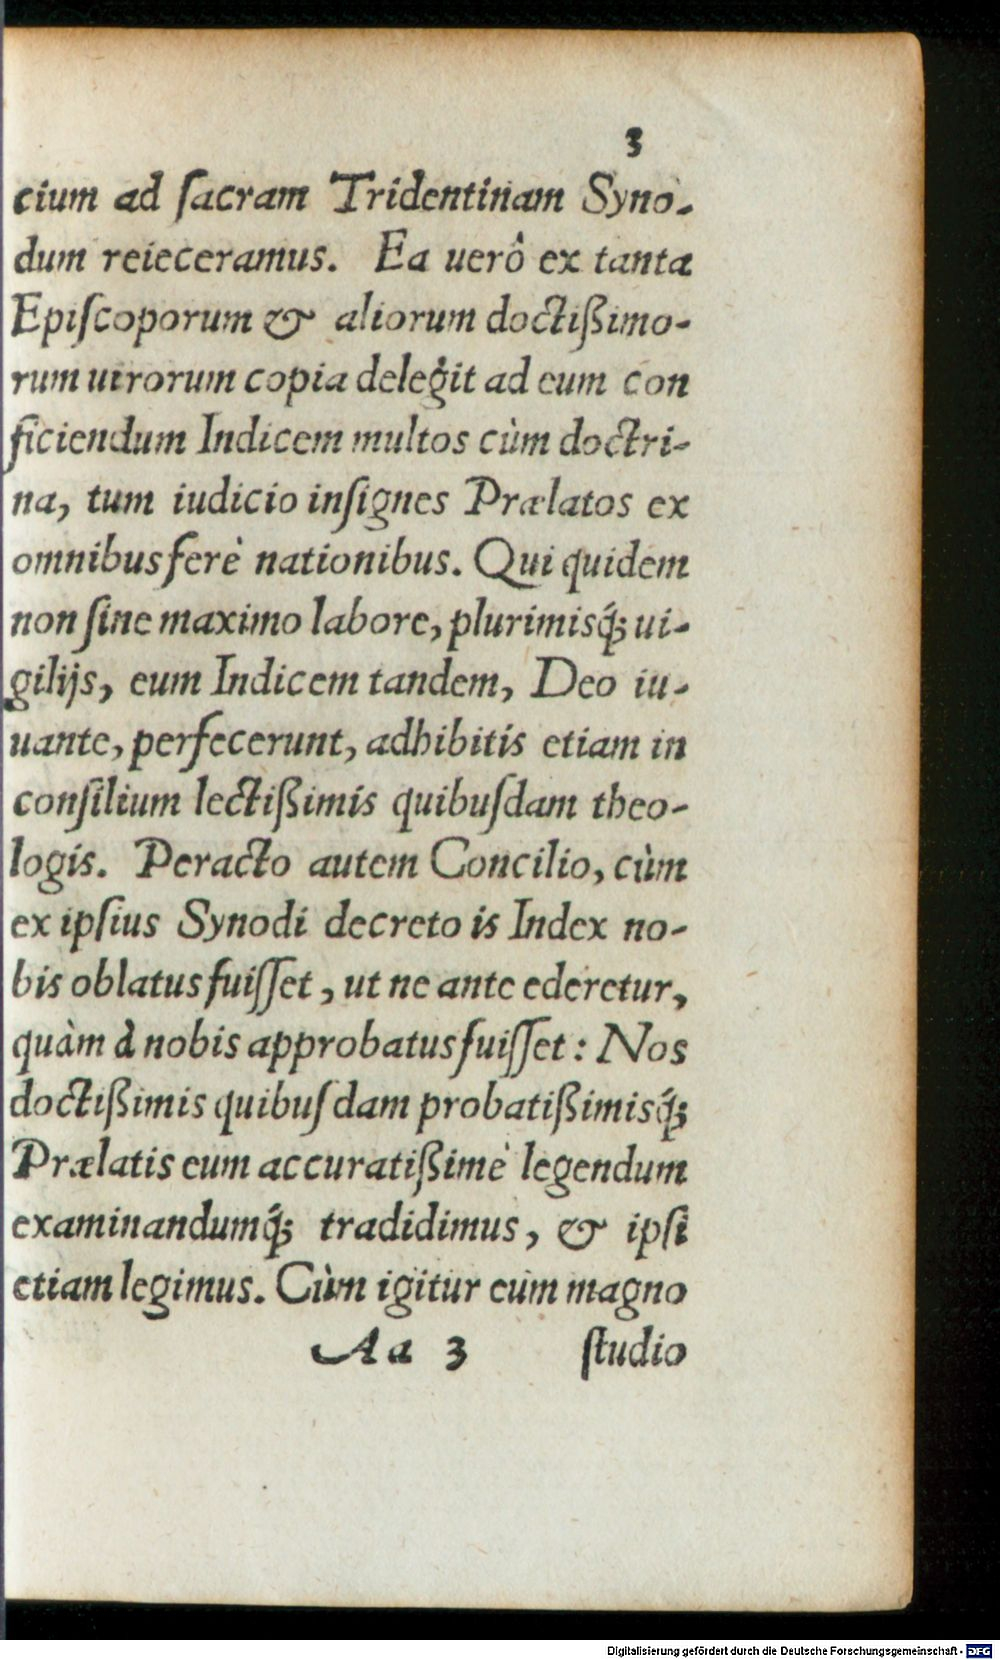 3
cium ad ſacram Tridentinam Syno-
dum reieceramus. Ea uerò ex tanta
Epiſcoporum & aliorum doctißimo-
rum uirorum copia delegit ad eum con
ficiendum Indicem multos cùm doctri-
na, tum iudicio inſignes Prælatos ex
omnibus ferè nationibus. Qui quidem
non ſine maximo labore, plurimisq́; ui-
gilijs, eum Indicem tandem, Deo iu-
uante, perfecerunt, adhibitis etiam in
conſilium lectißimis quibuſdam theo-
logis. Peracto autem Concilio, cùm
ex ipſius Synodi decreto is Index no-
bis oblatus fuiſſet, ut ne ante ederetur,
quàm à nobis approbatus fuiſſet: Nos
doctißimis quibuſdam probatißimisq́;
Prælatis eum accuratißimè legendum
examinandumq́; tradidimus, & ipſi
etiam legimus. Cùm igitur eum magno
Aa 3 ſtudio
Digitalisierung gefördert durch die Deutsche Forschungsgemeinschaft - DFG